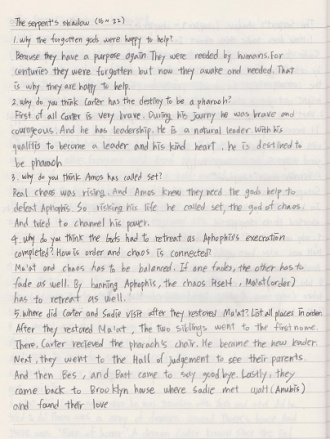 The serpent's shadow (16~22)
1. why the forgotten gods were happy to help?
Because they have a purpose again They were needed by humans. For
centuries they were forgotten but now they awake and needed. That
is why they are happy to help.
2. why do you think Carter has the destiny to be a pharaoh?
First of all Carter is very brave. During his journy he was brave and
courageous. And he has leadership. He is a natural leader with his
qualitis to become a leader and his kind heart. he is destined to
be pharaoh
3. why do you think Amos has called set?
Real chaos was rising. And Amos knew they need the gods help to
defeat Aphophis. So risking his life he called set, the god of chaos.
And tried to channel his power.
4. why do you think the Gods had to retreat as Aphophis's execration
completed? How is order and chaos is connected?
Ma'at and chaos has to be balanced. If one fades, the other has to
fade as well. By banning Aphophis, the chaos itself, Ma'at(order)
has to retreat as well.
5. where did Carter and Sadie visit after they restored Ma'at? List all places in order.
After they restored Ma'at, The two siblings went to the first nome.
There, Carter recieved the pharaoh's chair. He became the new leader.
Next, they went to the Hall of Judgement to see their parents.
And then Bes, and Bast came to say good bye. Lastly, they
came back to Brooklyn house where sadie met walt(Anubis)
and found their love